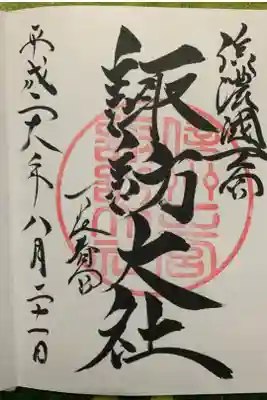 信濃國一宮
諏訪大社
下社春宮
平成二十八年八月二十一日